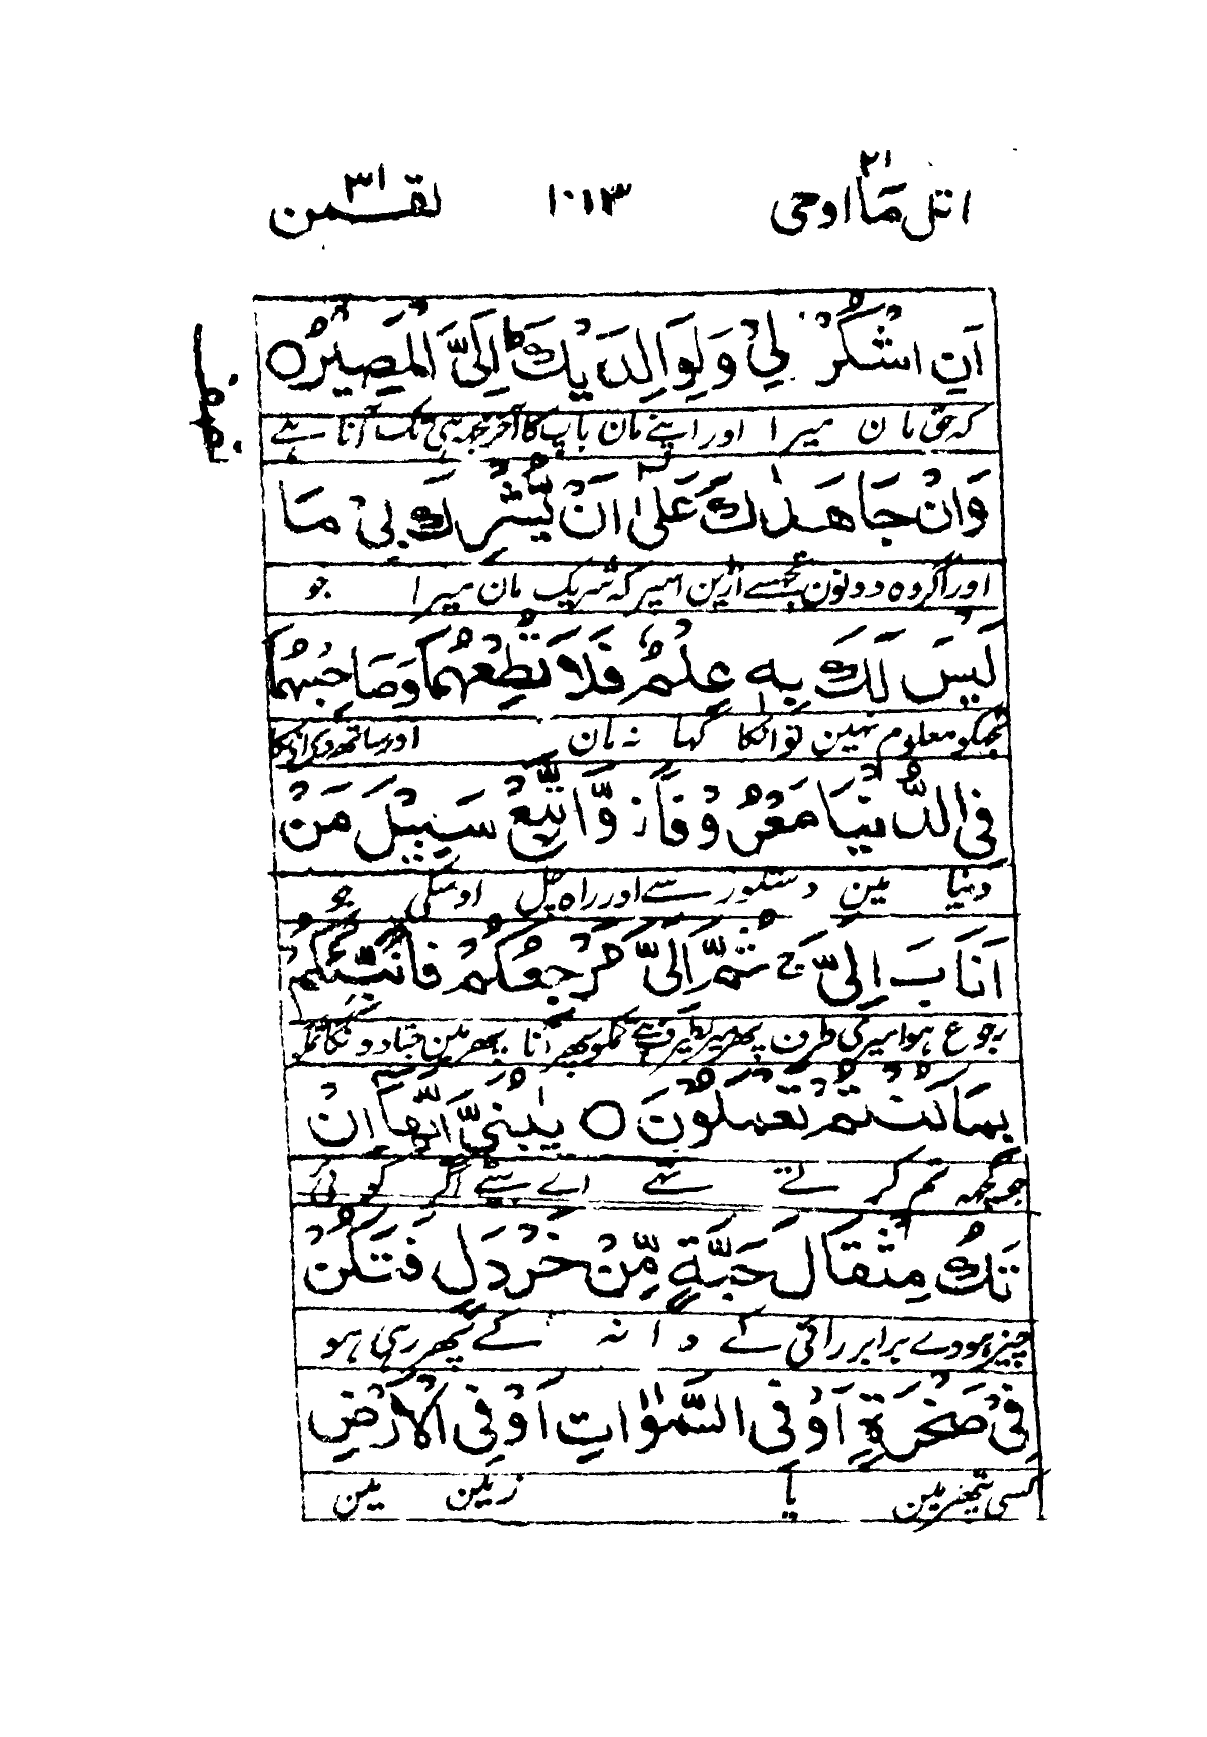 اتل مَا اوحی ٢١
١٠١٣
لقمٰن ٣١
اَنِ اشْكُرْ لِيْ وَلِوَالِدَيْكَ ؕ اِلَيَّ الْمَصِيْرُ ○
کہ حق مان میرا اور اپنے مان باپ کا آخر مجھ ہی تک آنا ہے
وَاِنْ جَاهَدٰكَ عَلٰٓى اَنْ تُشْرِكَ بِيْ مَا
اور اگر وہ دونون تجھسے اڑین اسپر کہ شریک مان میرا جو
لَيْسَ لَكَ بِهٖ عِلْمٌ فَلَا تُطِعْهُمَا وَصَاحِبْهُمَا
تجھکو معلوم نہین تو انکا کہا نہ مان اور ساتھ دی انکا
فِي الدُّنْيَا مَعْرُوْفًا ز وَّاتَّبِعْ سَبِيْلَ مَنْ
دنیا مین دستور سے اور راہ چل اوسکی جو
اَنَابَ اِلَيَّ ج ثُمَّ اِلَيَّ مَرْجِعُكُمْ فَاُنَبِّئُكُمْ
رجوع ہوا میری طرف پھر میریطرف ہے تمکو پھر آنا پھر مین جتا دونگا تمکو
بِمَا كُنْتُمْ تَعْمَلُوْنَ ○ يٰبُنَيَّ اِنَّهَآ اِنْ
جو کچھ تم کرتے تھے اے بیٹے اگر کوئی
تَكُ مِثْقَالَ حَبَّةٍ مِّنْ خَرْدَلٍ فَتَكُنْ
چیز ہووے برابر رائی کے دانہ کے پھر رہی ہو
فِيْ صَخْرَةٍ اَوْ فِي السَّمٰوٰتِ اَوْ فِي الْاَرْضِ
کسی پتھر مین یا زمین مین